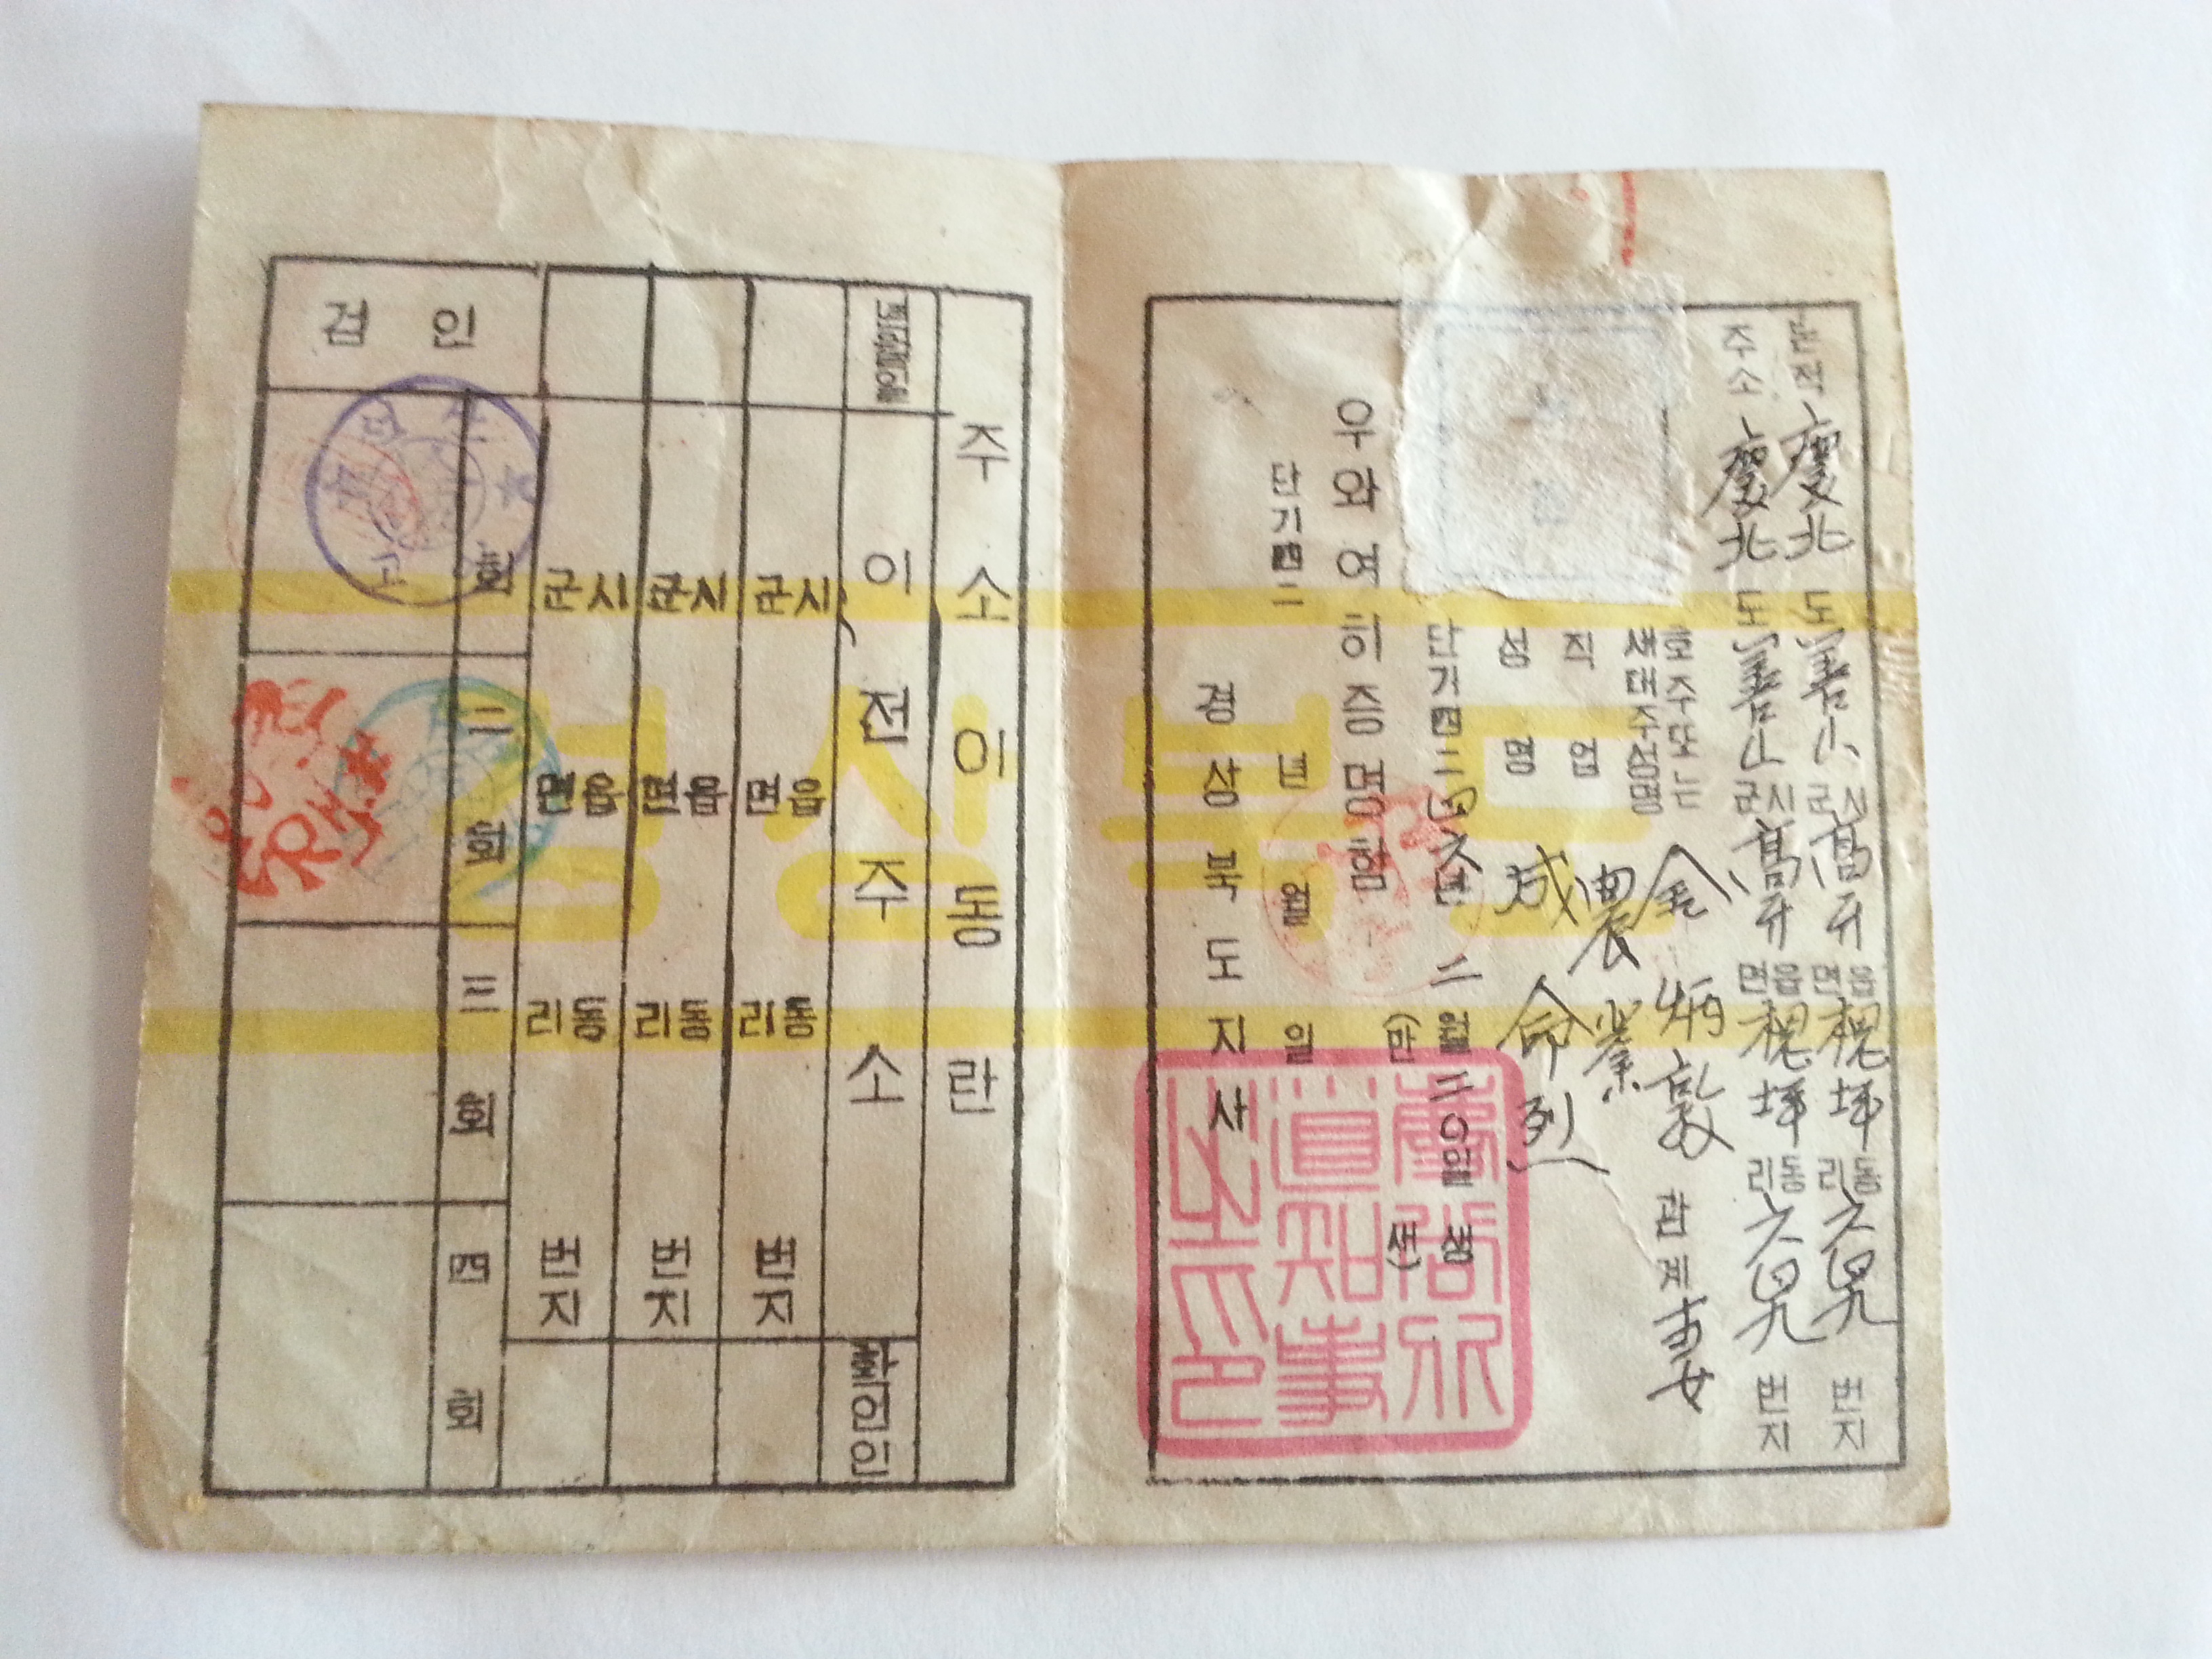 본적 慶北 도 善山 군시 高牙 면읍 槐坪 리동 六 번지
주소 慶北 도 善山 군시 高牙 면읍 槐坪 리동 六 번지
호주또는
세대주성명 金炳敦 관계 妻
직업 農業
성명 成命烈
단기四二 년 二월二〇일생
(만 세)
우와여히증명함
단기四二 년 월 일
경상북도지사
경상북도
주소이동란
년월일 이전주소 확인인
시군 읍면 동리 번지
시군 읍면 동리 번지
시군 읍면 동리 번지
검인
회
二회
三회
四회